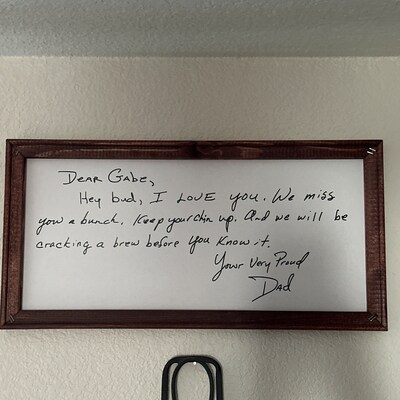 Dear Gabe,
Hey bud, I LOVE you. We miss
you a bunch. Keep your chin up. And we will be
cracking a brew before you know it.
Your Very Proud
Dad